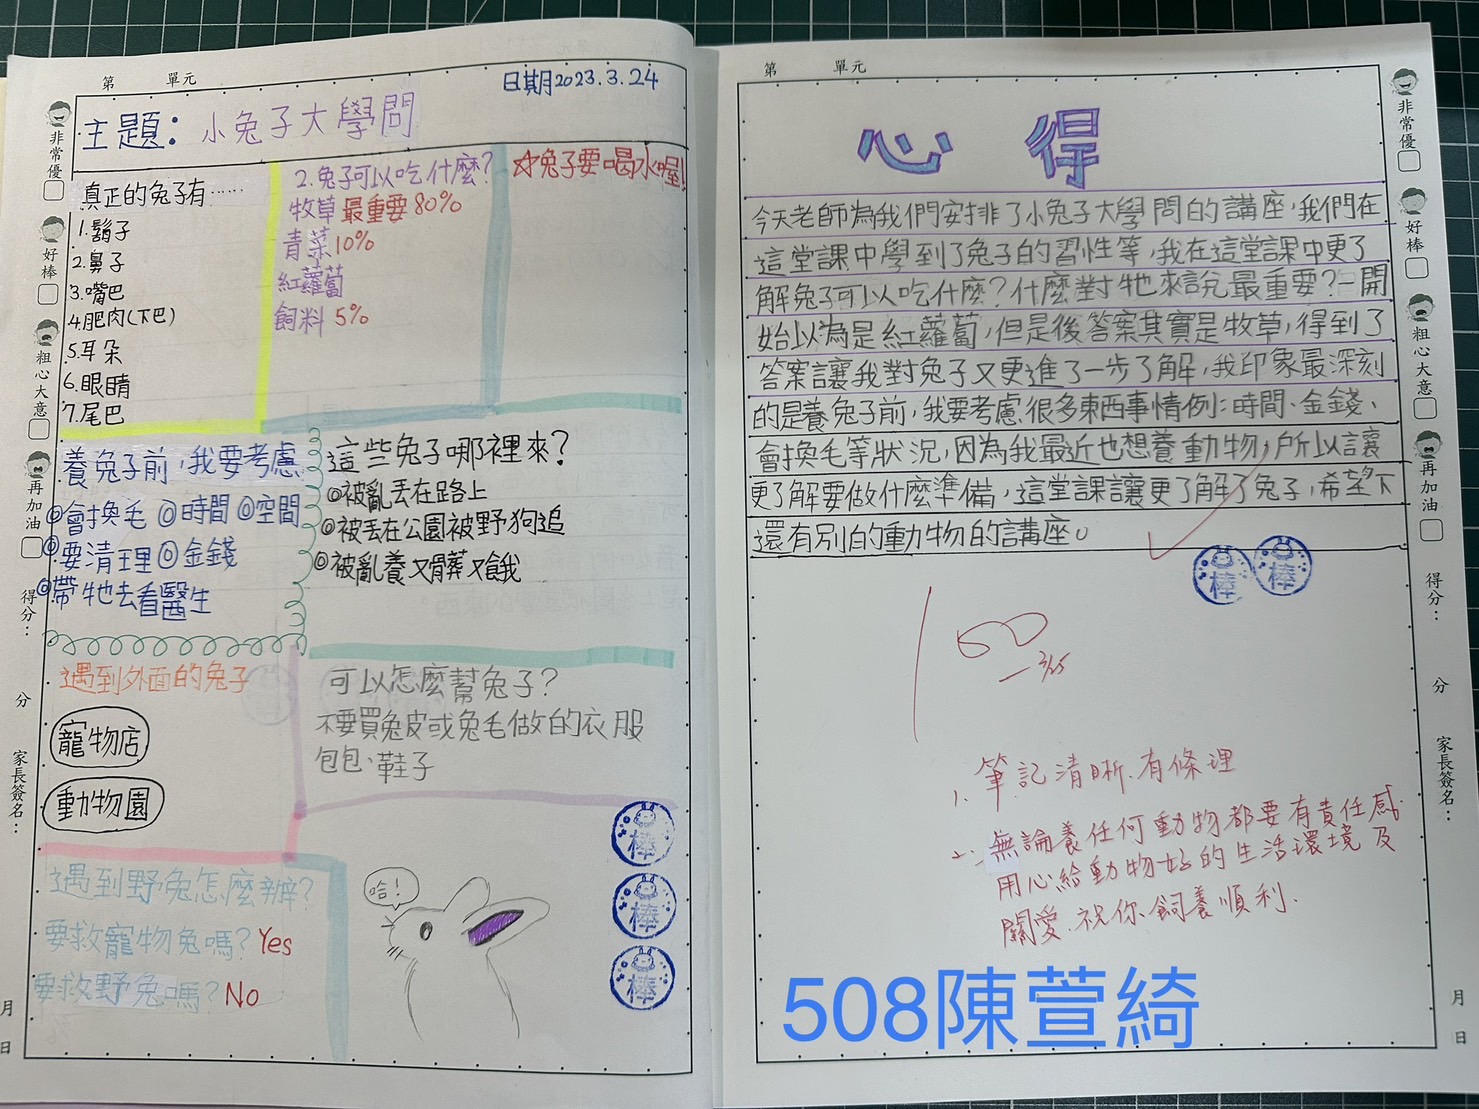 第 單元
日期2023.3.24
主題：小兔子大學問
真正的兔子有……
1.鬍子
2.鼻子
3.嘴巴
4.肥肉(下巴)
5.耳朵
6.眼睛
7.尾巴
2.兔子可以吃什麼?
牧草最重要80%
青菜10%
紅蘿蔔
飼料5%
☆兔子要喝水喔!
養兔子前，我要考慮
◎會換毛◎時間◎空間
◎要清理◎金錢
◎帶牠去看醫生
這些兔子哪裡來?
◎被亂丟在路上
◎被丟在公園被野狗追
◎被亂養又髒又餓
遇到外面的兔子
寵物店
動物園
可以怎麼幫兔子?
不要買兔皮或兔毛做的衣服
包包、鞋子
遇到野兔怎麼辦?
要救寵物兔嗎?Yes
要救野兔嗎?No
哈!
棒
棒
棒
非常優
好棒
粗心大意
再加油
得分：
分
家長簽名：
月
日
第 單元
心得
今天老師為我們安排了小兔子大學問的講座,我們在
這堂課中學到了兔子的習性等,我在這堂課中更了
解兔子可以吃什麼?什麼對牠來說最重要?一開
始以為是紅蘿蔔,但是後答案其實是牧草,得到了
答案讓我對兔子又更進了一步了解,我印象最深刻
的是養兔子前,我要考慮很多東西事情例:時間、金錢、
會換毛等狀況,因為我最近也想養動物,所以讓
更了解要做什麼準備,這堂課讓更了解了兔子,希望下
還有別的動物的講座。
棒 棒
100
3/25
1、筆記清晰、有條理
2、無論養任何動物都要有責任感.
用心給動物好的生活環境及
關愛.祝你飼養順利.
508陳萱綺
非常優
好棒
粗心大意
再加油
得分：
分
家長簽名：
月
日